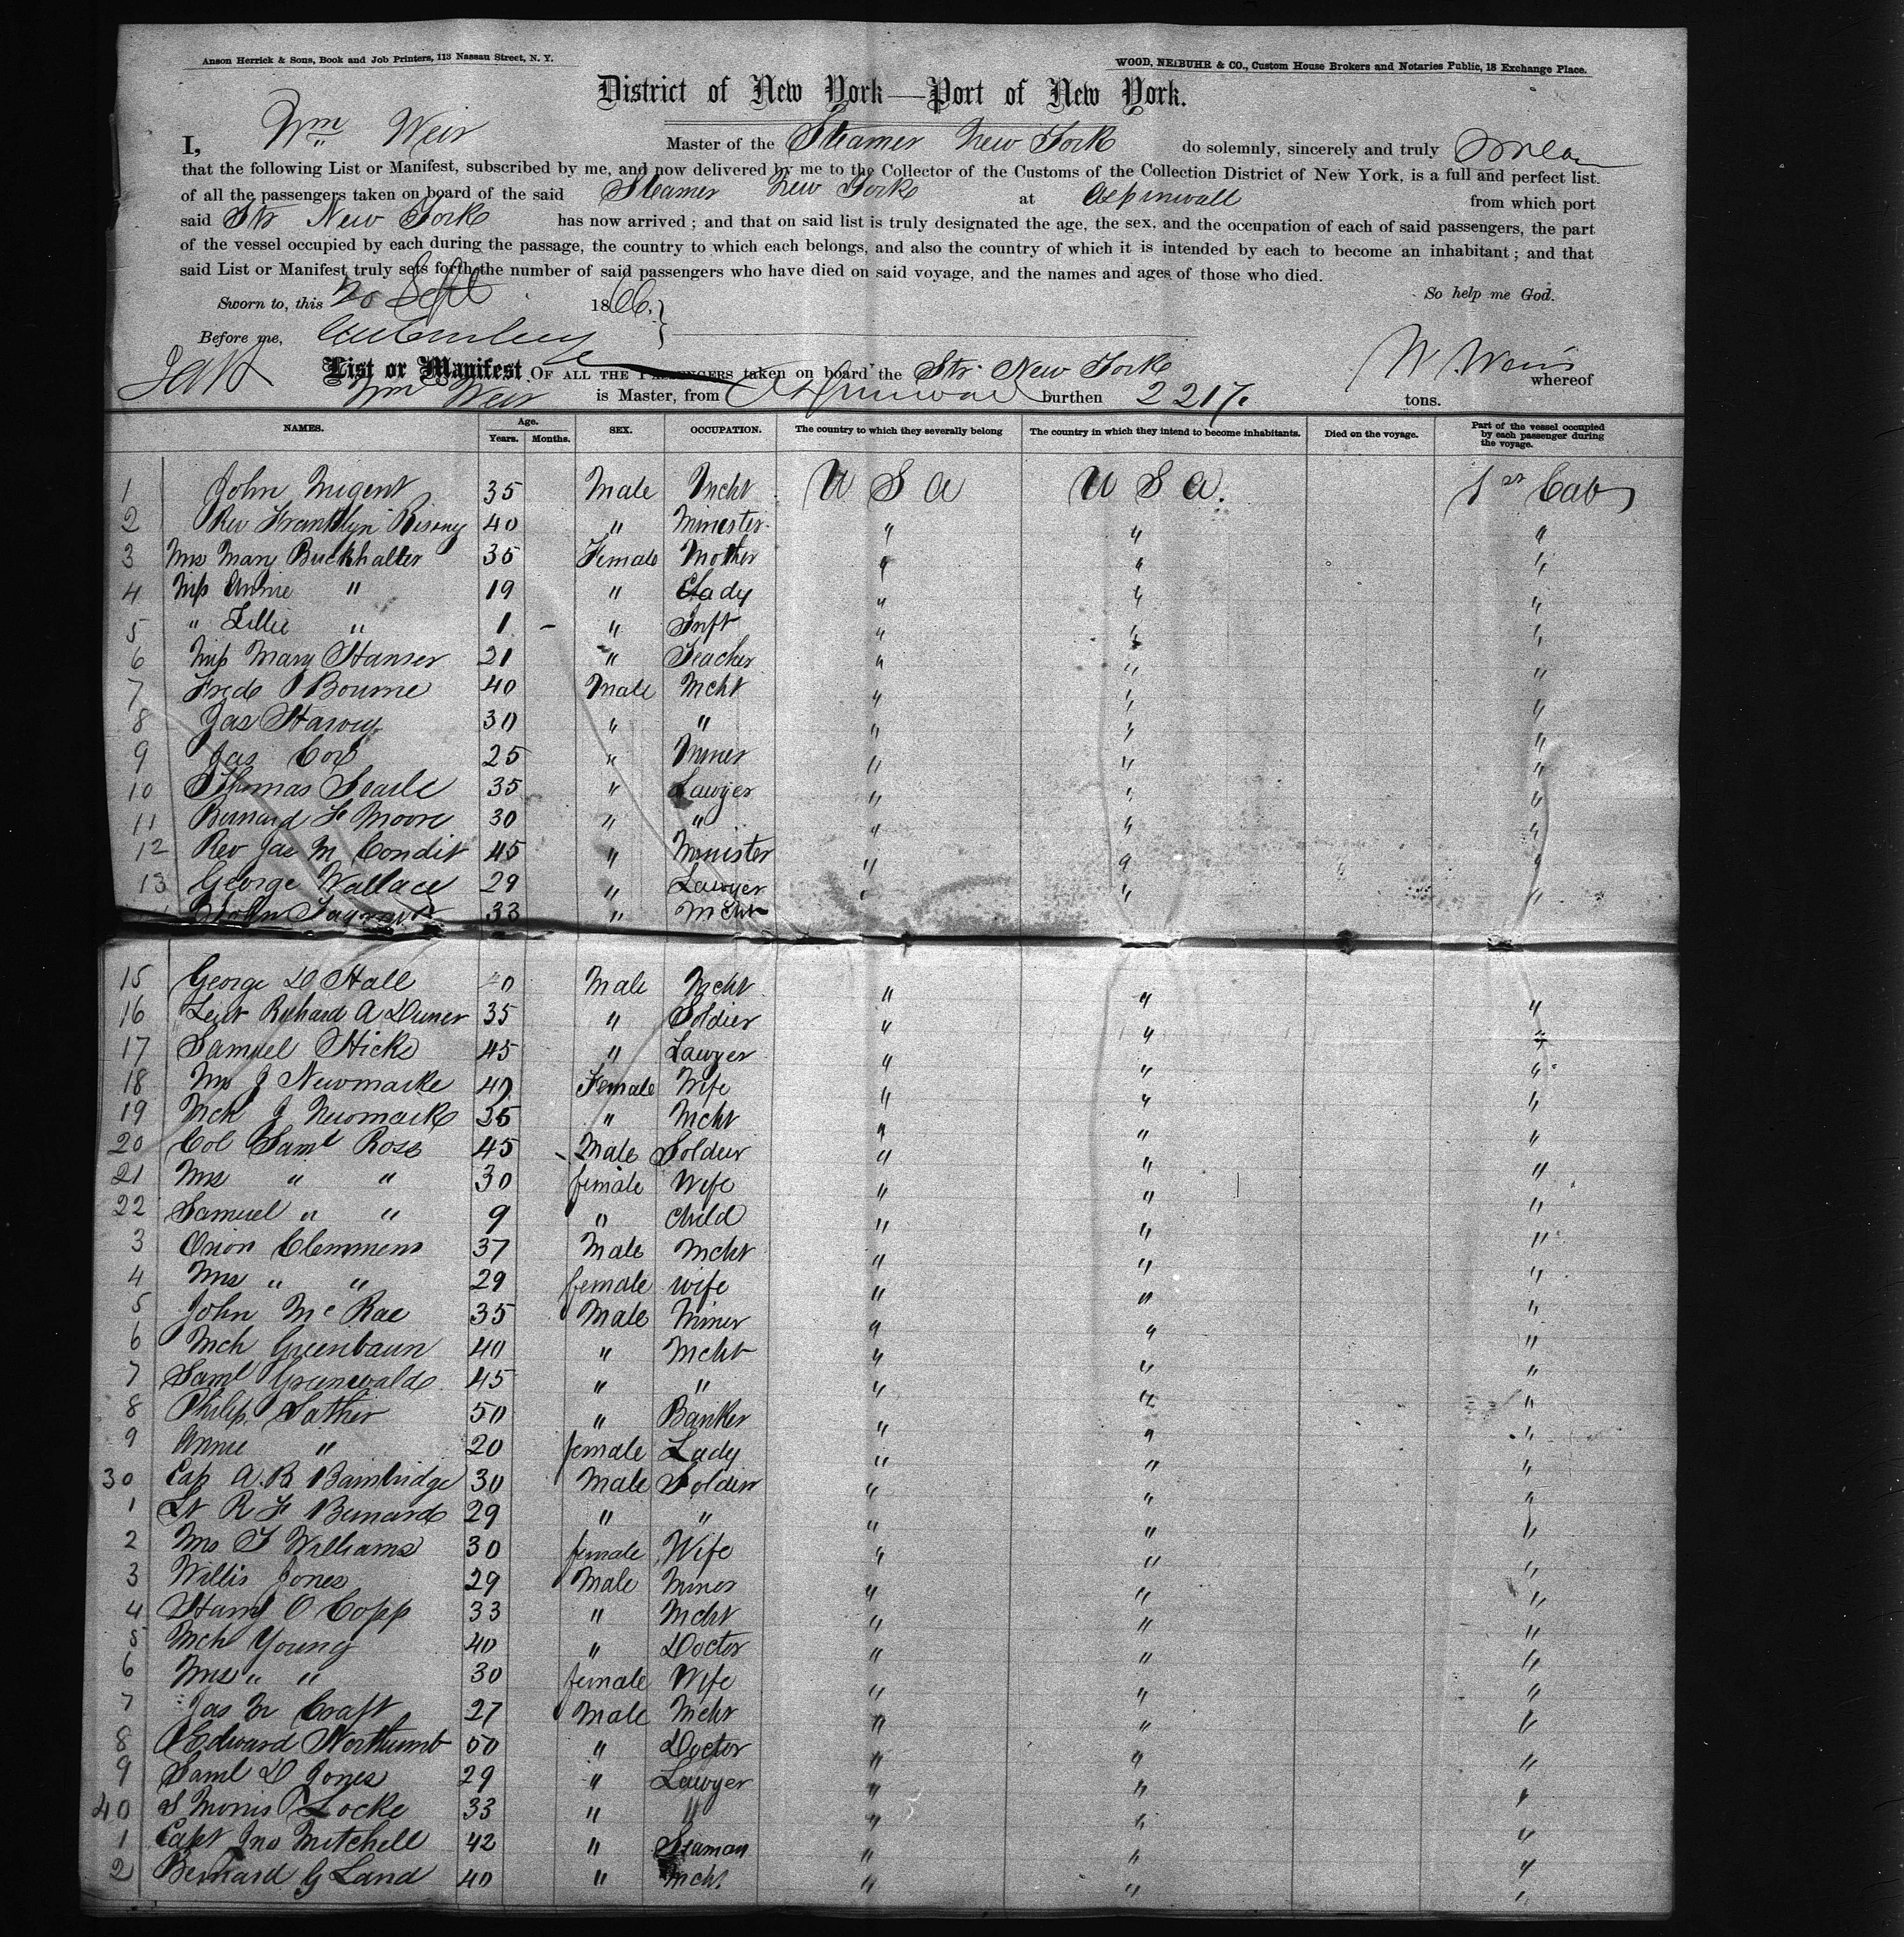 Anson Herrick & Sons, Book and Job Printers, 113 Nassau Street, N. Y.
WOOD, NEIBUHR & CO., Custom House Brokers and Notaries Public, 18 Exchange Place.
District of New York—Port of New York.
I, Wm Weir Master of the Steamer New York do solemnly, sincerely and truly swear
that the following List or Manifest, subscribed by me, and now delivered by me to the Collector of the Customs of the Collection District of New York, is a full and perfect list.
of all the passengers taken on board of the said Steamer New York at Aspinwall from which port
said Str New York has now arrived; and that on said list is truly designated the age, the sex, and the occupation of each of said passengers, the part
of the vessel occupied by each during the passage, the country to which each belongs, and also the country of which it is intended by each to become an inhabitant; and that
said List or Manifest truly sets forth the number of said passengers who have died on said voyage, and the names and ages of those who died.
Sworn to, this 20 Sept 1866. So help me God.
Before me,
List or Manifest OF ALL THE PASSENGERS taken on board the Str New York W. Weir whereof
Wm Weir is Master, from Aspinwall burthen 2217. tons.
NAMES. Age. Years. Months. SEX. OCCUPATION. The country to which they severally belong The country in which they intend to become inhabitants. Died on the voyage. Part of the vessel occupied by each passenger during the voyage.
1 John Nugent 35 Male Mcht U S A U S A. 1st Cab
2 Rev Franklyn 40 " Minister " " "
3 Mrs Mary Buckhalter 35 Female Mother " " "
4 Miss Annie " 19 " Lady " " "
5 " Lillie " 1 - " Inft " " "
6 Miss Mary Hanser 21 " Teacher " " "
7 Fredk Bourne 40 Male Mcht " " "
8 Jas Harvey 30 " " " " "
9 Jas Cox 25 " Miner " " "
10 Thomas Searle 35 " Lawyer " " "
11 Bernard F Moore 30 " " " " "
12 Rev Jas M Condit 45 " Minister " " "
13 George Wallace 29 " Lawyer " " "
33 " Mcht
15 George D Hall Male Mcht " " "
16 Leut Richard A Duner 35 " Soldier " " "
17 Samuel Hicks 45 " Lawyer " " "
18 Mrs J Newmarke 40 Female Wife " " "
19 Mch J Newmark 35 " Mcht " " "
20 Col Saml Ross 45 Male Soldier " " "
21 Mrs " " 30 female Wife " " "
22 Samuel " " 9 " Child " " "
3 Orion Clemmens 37 Male Mcht " " "
4 Mrs " " 29 female wife " " "
5 John Mc Rae 35 Male Miner " " "
6 Mch Greenbaun 40 " Mcht " " "
7 Saml Grunwald 45 " " " " "
8 Philip Sather 50 " Banker " " "
9 Annie " 20 female Lady " " "
30 Cap A. B Bambridge 30 Male Soldier " " "
1 Lt R F Bernard 29 " " " " "
2 Mrs T Williams 30 female Wife " " "
3 Willis Jones 29 Male Miner " " "
4 Harry O Copp 33 " Mcht " " "
5 Mch Young 40 " Doctor " " "
6 Mrs " " 30 female Wife " " "
7 Jas M Craft 27 Male Mcht " " "
8 Edward Northumb 50 " Doctor " " "
9 Saml D Jones 29 " Lawyer " " "
40 S Morris Locke 33 " " " " "
1 Capt Jno Mitchell 42 " Seaman " " "
2 Bernard G Land 40 " Mcht " " "